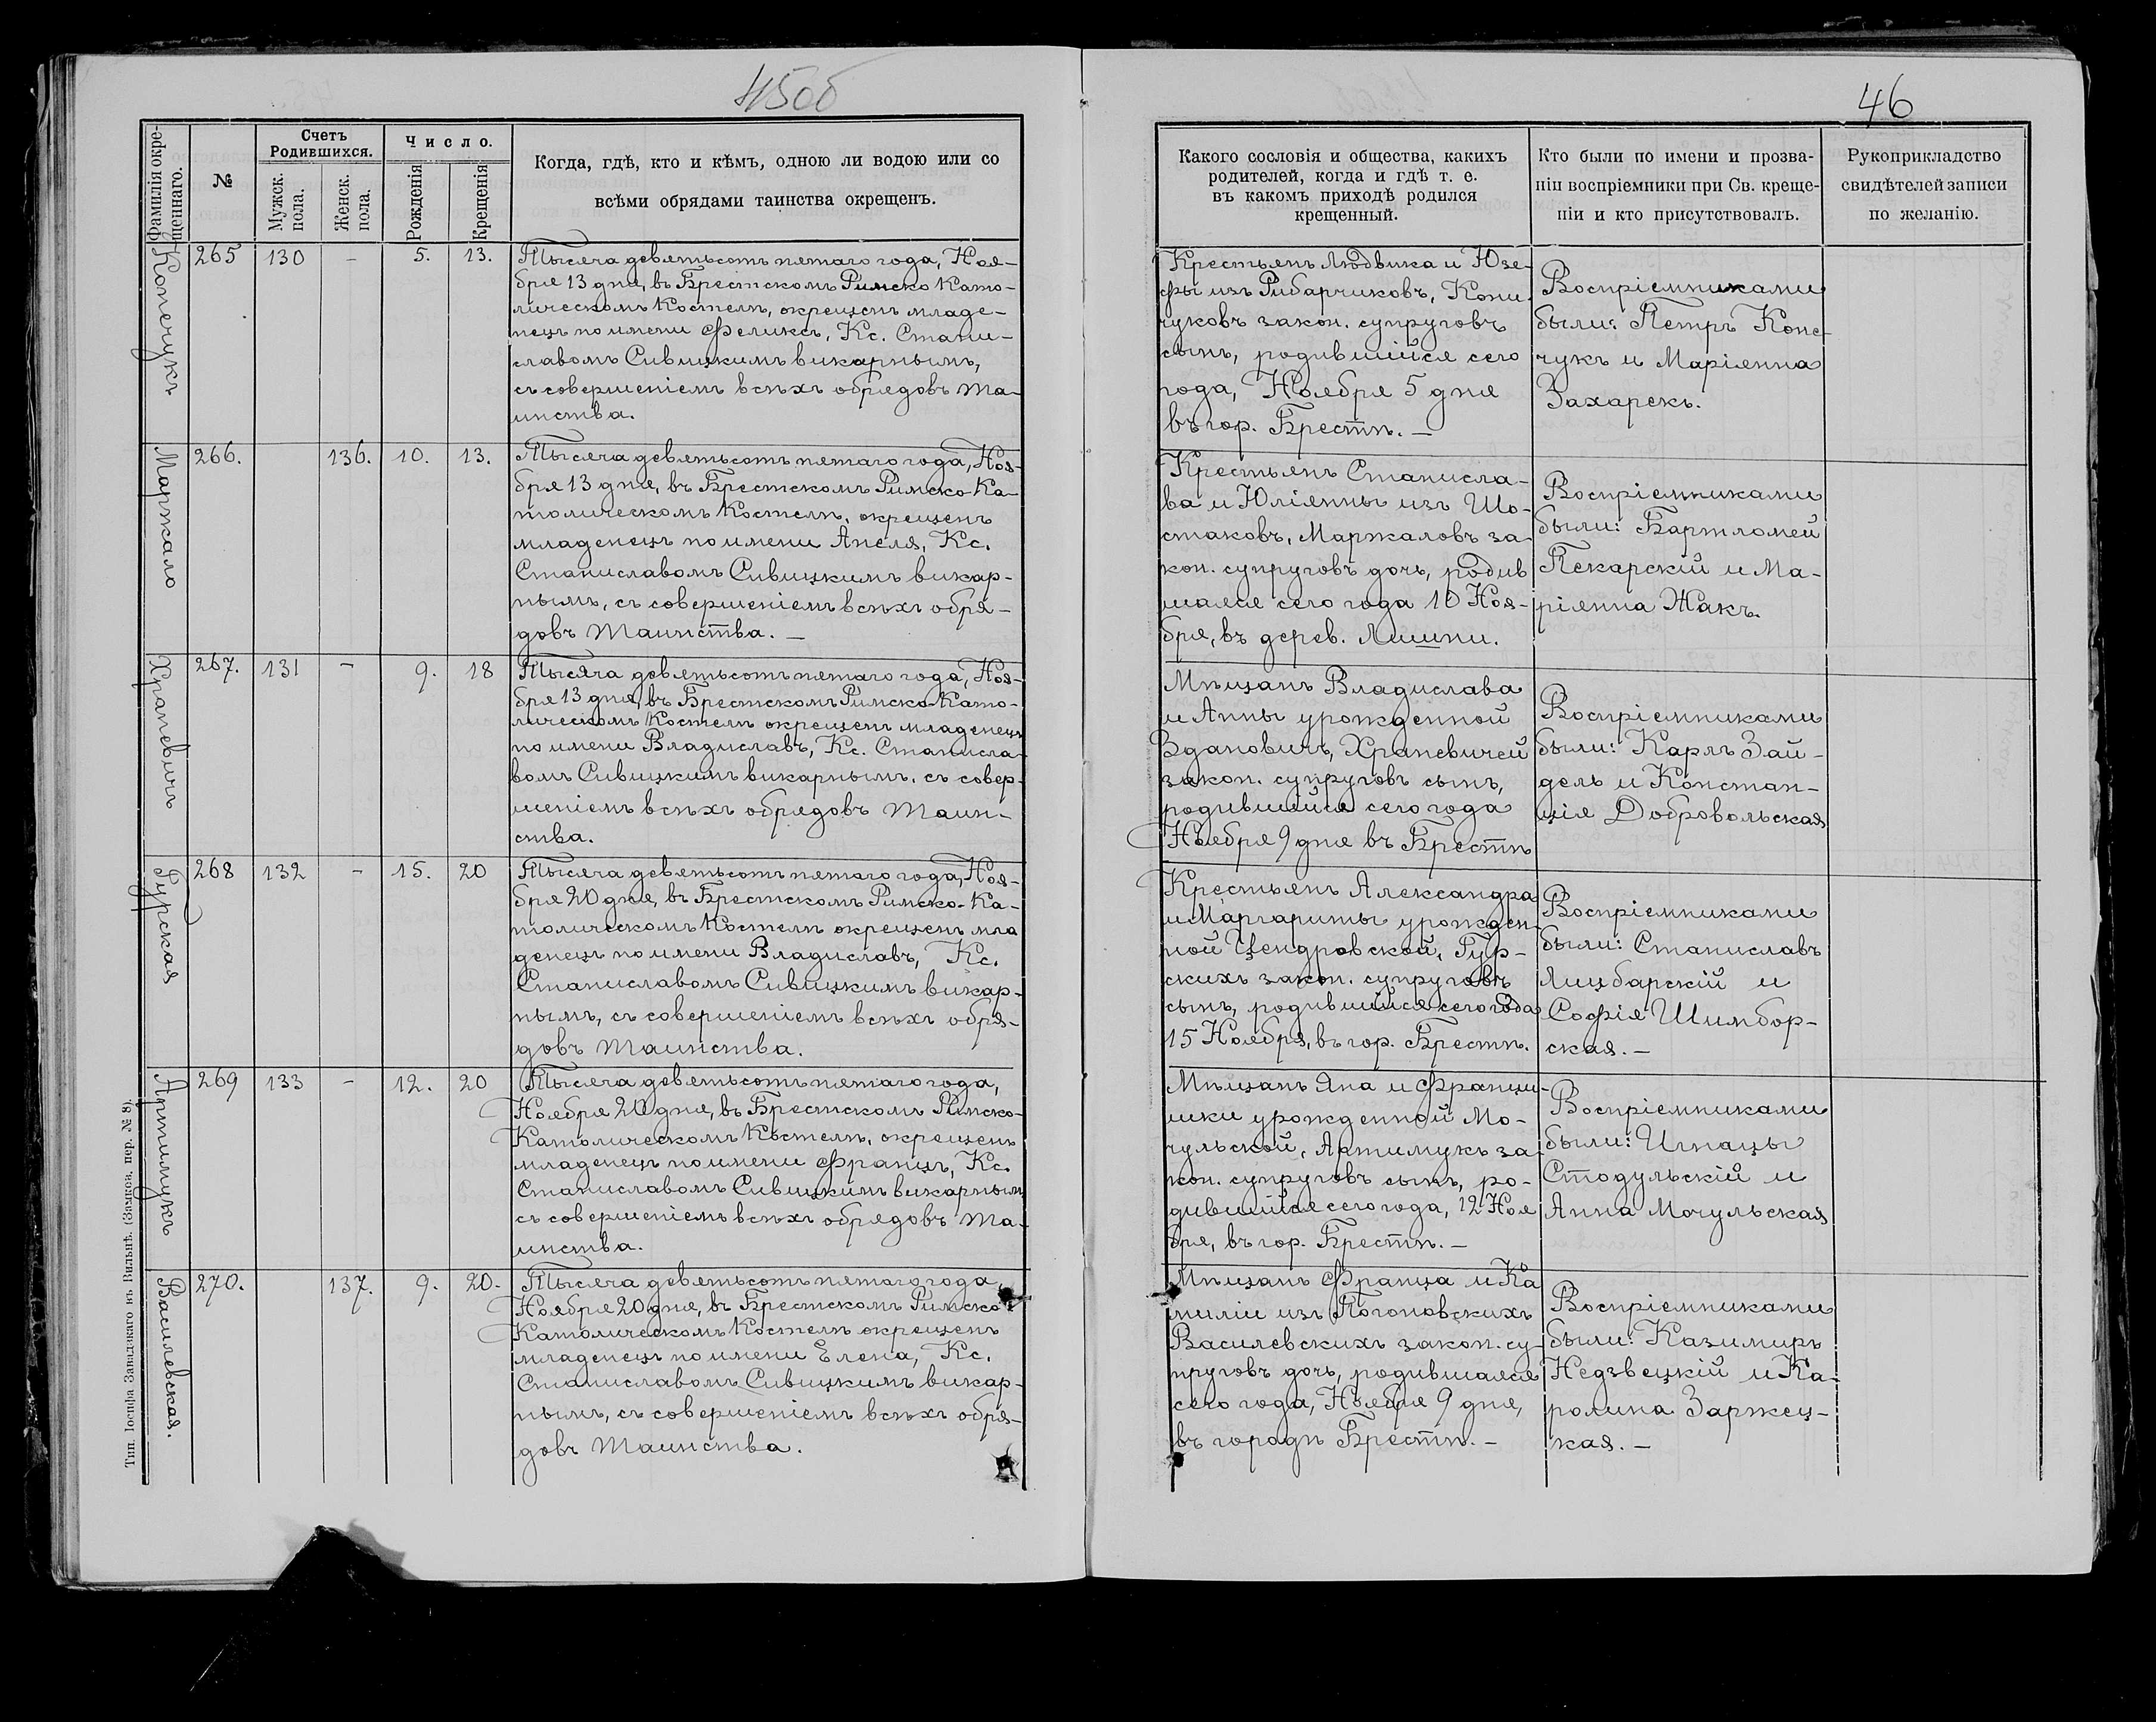 45об
Фамилія окре-
щеннаго.
№
Счетъ
Родившихся.
Мужск.
пола.
Женск.
пола.
Число.
Рожденія
Крещенія
Когда, гдѣ, кто и кѣмъ, одною ли водою или со
всѣми обрядами таинства окрещенъ.
Копечукъ
265 130 – 5. 13.
Тысяча девятьсотъ пятаго года, Ноя-
бря 13 дня, въ Брестскомъ Римско Като-
лическомъ Костелѣ, окрещенъ младе-
нецъ по имени Феликсъ, Кс. Стани-
славомъ Сивицкимъ викарнымъ,
съ совершеніемъ всѣхъ обрядовъ Та-
инства.
Маржало
266. 136. 10. 13.
Тысяча девятьсотъ пятаго года, Ноя-
бря 13 дня, въ Брестскомъ Римско-Ка-
толическомъ Костелѣ, окрещенъ
младенецъ по имени Анеля, Кс.
Станиславомъ Сивицкимъ викар-
нымъ, съ совершеніемъ всѣхъ обря-
довъ Таинства. –
Храпевичъ
267. 131 – 9. 18
Тысяча девятьсотъ пятаго года, Ноя-
бря 13 дня, въ Брестскомъ Римско-Като-
лическомъ Костелѣ окрещенъ младенецъ
по имени Владиславъ, Кс. Станисла-
вомъ Сивицкимъ викарнымъ, съ совер-
шеніемъ всѣхъ обрядовъ Таин-
ства.
Гурская
268 132 – 15. 20
Тысяча девятьсотъ пятаго года, Ноя-
бря 20 дня, въ Брестскомъ Римско-Ка-
толическомъ Костелѣ окрещенъ мла
денецъ по имени Владиславъ, Кс.
Станиславомъ Сивицкимъ викар-
нымъ, съ совершеніемъ всѣхъ обря-
довъ Таинства.
Артимукъ
269 133 – 12. 20
Тысяча девятьсотъ пятаго года,
Ноября 20 дня, въ Брестскомъ Римско-
Католическомъ Костелѣ, окрещенъ
младенецъ по имени Францъ, Кс.
Станиславомъ Сивицкимъ викарнымъ
съ совершеніемъ всѣхъ обрядовъ Та-
инства.
Василевская.
270. 137. 9. 20.
Тысяча девятьсотъ пятаго года,
Ноября 20 дня, въ Брестскомъ Римско-
Католическомъ Костелѣ окрещенъ
младенецъ по имени Елена, Кс.
Станиславомъ Сивицкимъ викар-
нымъ, съ совершеніемъ всѣхъ обря-
довъ Таинства.
Тип. Іосифа Завадзкаго въ Вильнѣ. (Замков. пер. № 8).
46
Какого сословія и общества, какихъ
родителей, когда и гдѣ т. е.
въ какомъ приходѣ родился
крещенный.
Кто были по имени и прозва-
ніи воспріемники при Св. креще-
ніи и кто присутствовалъ.
Рукоприкладство
свидѣтелей записи
по желанію.
Крестьянъ Людвика и Юзе-
фы изъ Рибарчиковъ, Копи-
чуковъ закон. супруговъ
сынъ, родившійся сего
года, Ноября 5 дня
въ гор. Брестѣ. –
Воспріемниками
были: Петръ Копе-
чукъ и Маріянна
Захарекъ.
Крестьянъ Станисла-
ва и Юліянны изъ Шо-
стаковъ, Маржаловъ за-
кон. супруговъ дочь, родив
шаяся сего года 10 Ноя-
бря, въ дерев. Лишни.
Воспріемниками
были: Бартломей
Пекарскій и Ма-
ріянна Жакъ.
Мѣщанъ Владислава
и Анны урожденной
Здановичъ, Храпевичей
закон. супруговъ сынъ,
родившійся сего года
Ноября 9 дня въ Брестѣ
Воспріемниками
были: Карлъ Зай-
дель и Констан-
ція Добровольская
Крестьянъ Александра
и Маргариты урожден-
ной Цендровской, Гур-
скихъ закон. супруговъ
сынъ, родившійся сего года
15 Ноября, въ гор. Брестѣ.
Воспріемниками
были: Станиславъ
Лицбарскій и
Софія Шимбор-
ская. –
Мѣщанъ Яна и Франци-
шки урожденной Мо-
чульской, Артимукъ за-
кон. супруговъ сынъ, ро-
дившійся сего года, 12 Ноя
бря, въ гор. Брестѣ. –
Воспріемниками
были: Игнацы
Стодульскій и
Анна Мочульская
Мѣщанъ Франца и Ка
миліи изъ Погоновскихъ
Василевскихъ закон. су-
пруговъ дочь, родившаяся
сего года, Ноября 9 дня,
въ городѣ Брестѣ. –
Воспріемниками
были: Казимиръ
Недзвецкій и Ка-
ролина Заржец-
кая. –